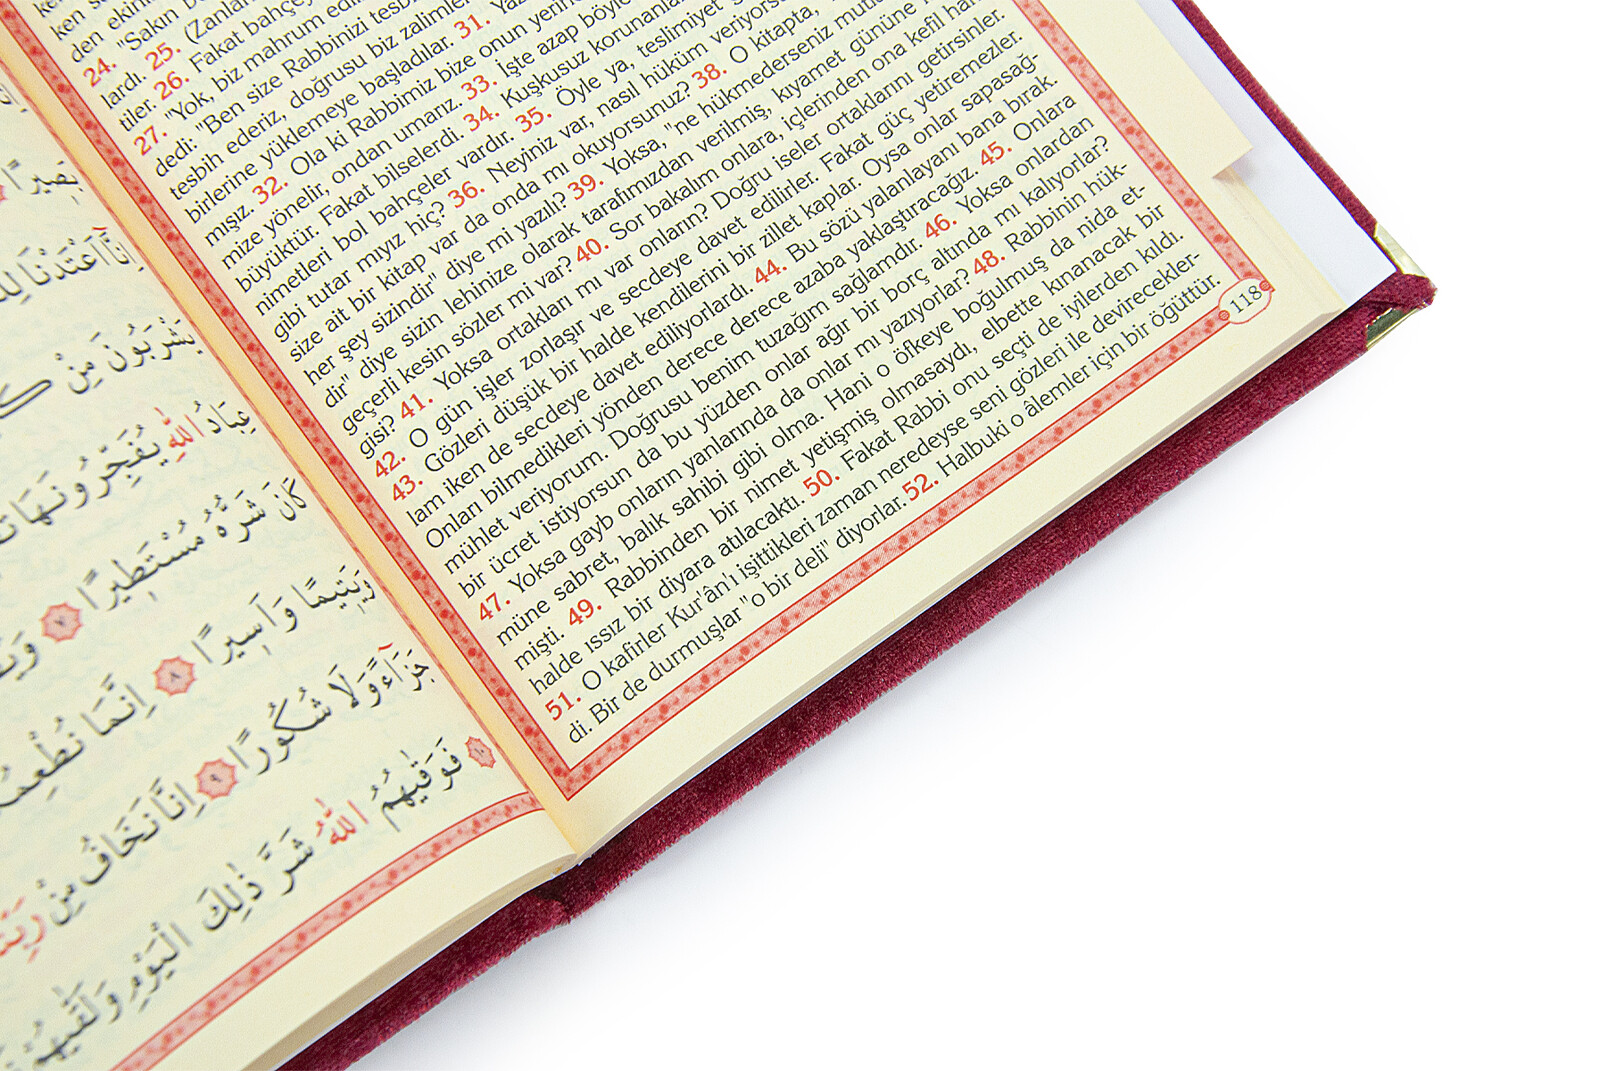 بَصِيرًا
اِنَّٓا اَعْتَدْنَا
يَشْرَبُونَ مِنْ
عِبَادُ اللّٰهِ يُفَجِّرُونَهَا
كَانَ شَرُّهُ مُسْتَطِيرًا ٧
وَيَتِيمًا وَاَسِيرًا ٨ اِنَّمَا
جَزَٓاءً وَلَا شُكُورًا ٩ اِنَّا نَخَافُ مِنْ
١٠ فَوَقٰيهُمُ اللّٰهُ شَرَّ ذٰلِكَ الْيَوْمِ وَلَقّٰيهُمْ
den ekini
24. "Sakın
lardı. 25. (Zanları
tiler. 26. Fakat bahçey
27. "Yok, biz mahrum edil
dedi: "Ben size Rabbinizi tesb
tesbih ederiz, doğrusu biz zalimler
birlerine yüklemeye başladılar. 31.
mışız. 32. Ola ki Rabbimiz bize onun yerin
mize yönelir, ondan umarız. 33. İşte azap böyle
büyüktür. Fakat bilselerdi. 34. Kuşkusuz korunanla
nimetleri bol bahçeler vardır. 35. Öyle ya, teslimiyet
gibi tutar mıyız hiç? 36. Neyiniz var, nasıl hüküm veriyors
size ait bir kitap var da onda mı okuyorsunuz? 38. O kitapta,
her şey sizindir" diye mi yazılı? 39. Yoksa, "ne hükmederseniz mutla
dir" diye sizin lehinize olarak tarafımızdan verilmiş, kıyamet gününe
geçerli kesin sözler mi var? 40. Sor bakalım onlara, içlerinden ona kefil han-
gisi? 41. Yoksa ortakları mı var onların? Doğru iseler ortaklarını getirsinler.
42. O gün işler zorlaşır ve secdeye davet edilirler. Fakat güç yetiremezler.
43. Gözleri düşük bir halde kendilerini bir zillet kaplar. Oysa onlar sapasağ-
lam iken de secdeye davet ediliyorlardı. 44. Bu sözü yalanlayanı bana bırak.
Onları bilmedikleri yönden derece derece azaba yaklaştıracağız. 45. Onlara
mühlet veriyorum. Doğrusu benim tuzağım sağlamdır. 46. Yoksa onlardan
bir ücret istiyorsun da bu yüzden onlar ağır bir borç altında mı kalıyorlar?
47. Yoksa gayb onların yanlarında da onlar mı yazıyorlar? 48. Rabbinin hük-
müne sabret, balık sahibi gibi olma. Hani o öfkeye boğulmuş da nida et-
mişti. 49. Rabbinden bir nimet yetişmiş olmasaydı, elbette kınanacak bir
halde ıssız bir diyara atılacaktı. 50. Fakat Rabbi onu seçti de iyilerden kıldı.
51. O kafirler Kur'ân'ı işittikleri zaman neredeyse seni gözleri ile devirecekler-
di. Bir de durmuşlar "o bir deli" diyorlar. 52. Halbuki o âlemler için bir öğüttür.
118